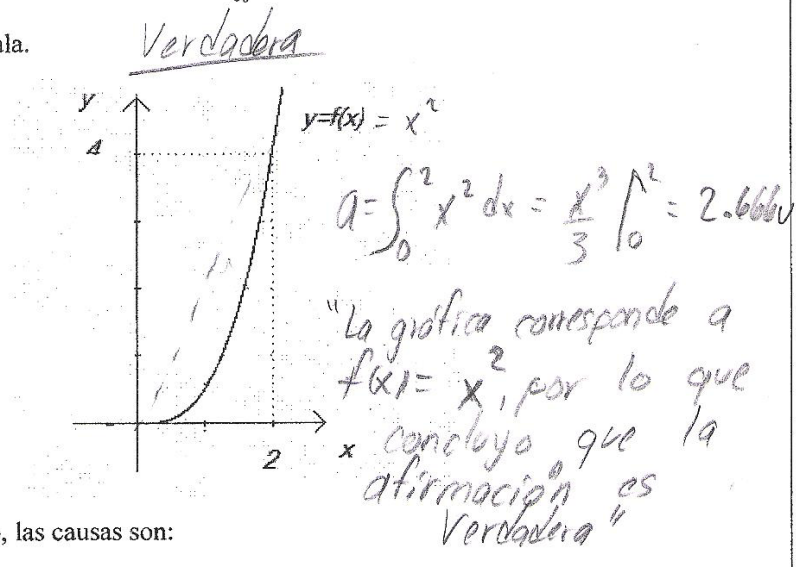 ala.
Verdadera
y
y=f(x) = x²
4
a = ∫₀² x² dx = x³/3 |₀² = 2.666u
"La gráfica corresponde a
f(x) = x², por lo que
concluyo que la
afirmación es
Verdadera"
2
x
, las causas son: